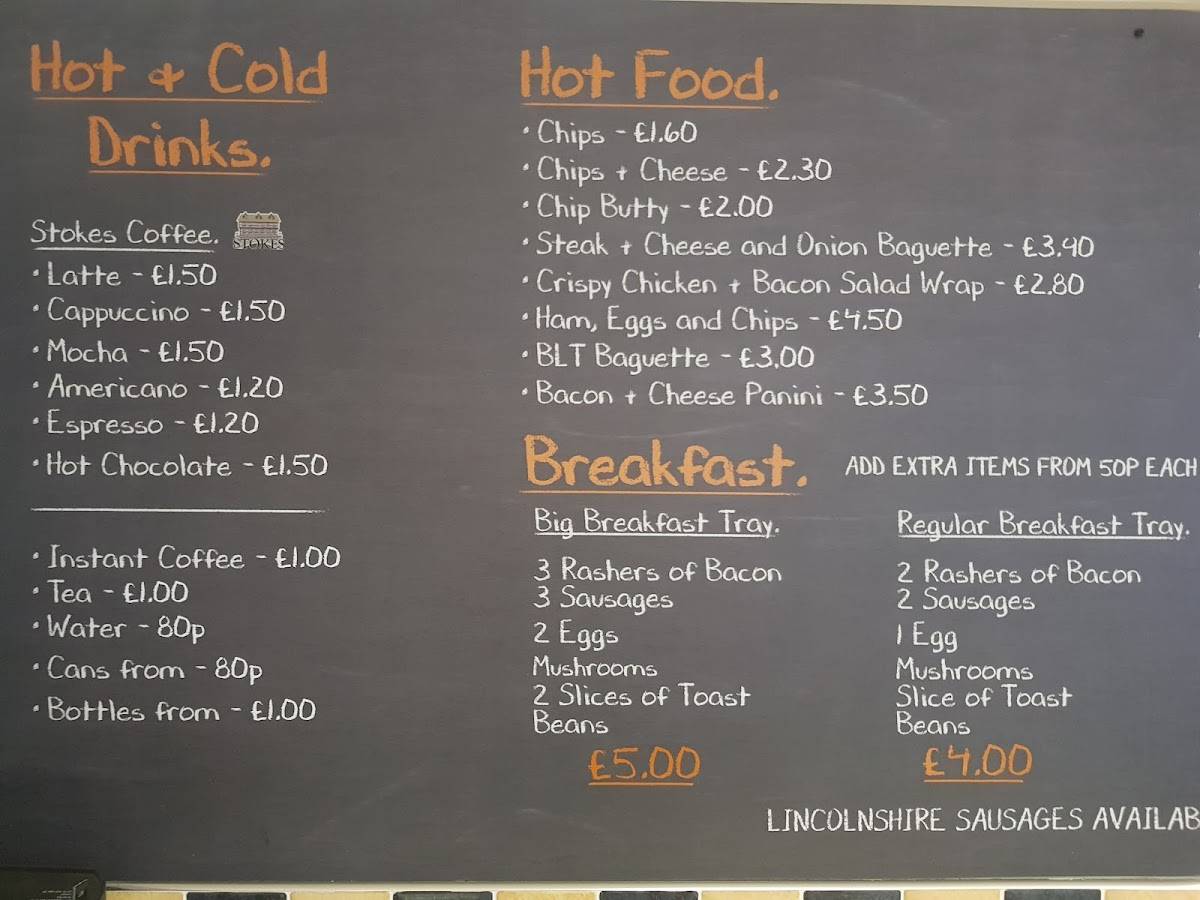 Hot & Cold
Drinks.
Stokes Coffee.
STOKES
• Latte - £1.50
• Cappuccino - £1.50
• Mocha - £1.50
• Americano - £1.20
• Espresso - £1.20
• Hot Chocolate - £1.50
• Instant Coffee - £1.00
• Tea - £1.00
• Water - 80p
• Cans from - 80p
• Bottles from - £1.00
Hot Food.
• Chips - £1.60
• Chips + Cheese - £2.30
• Chip Butty - £2.00
• Steak + Cheese and Onion Baguette - £3.40
• Crispy Chicken + Bacon Salad Wrap - £2.80
• Ham, Eggs and Chips - £4.50
• BLT Baguette - £3.00
• Bacon + Cheese Panini - £3.50
Breakfast.
ADD EXTRA ITEMS FROM 50P EACH
Big Breakfast Tray.
3 Rashers of Bacon
3 Sausages
2 Eggs
Mushrooms
2 Slices of Toast
Beans
£5.00
Regular Breakfast Tray.
2 Rashers of Bacon
2 Sausages
1 Egg
Mushrooms
Slice of Toast
Beans
£4.00
LINCOLNSHIRE SAUSAGES AVAILAB